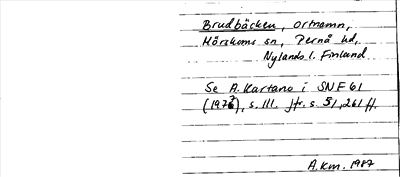 Brudbäcken, ortnamn,
Mörskoms sn, Pernå hd,
Nylands l. Finland.
Se A. Kartano i SNF 61
(1972), s. 111. jfr. s. 51, 261 ff.
A.Km. 1987